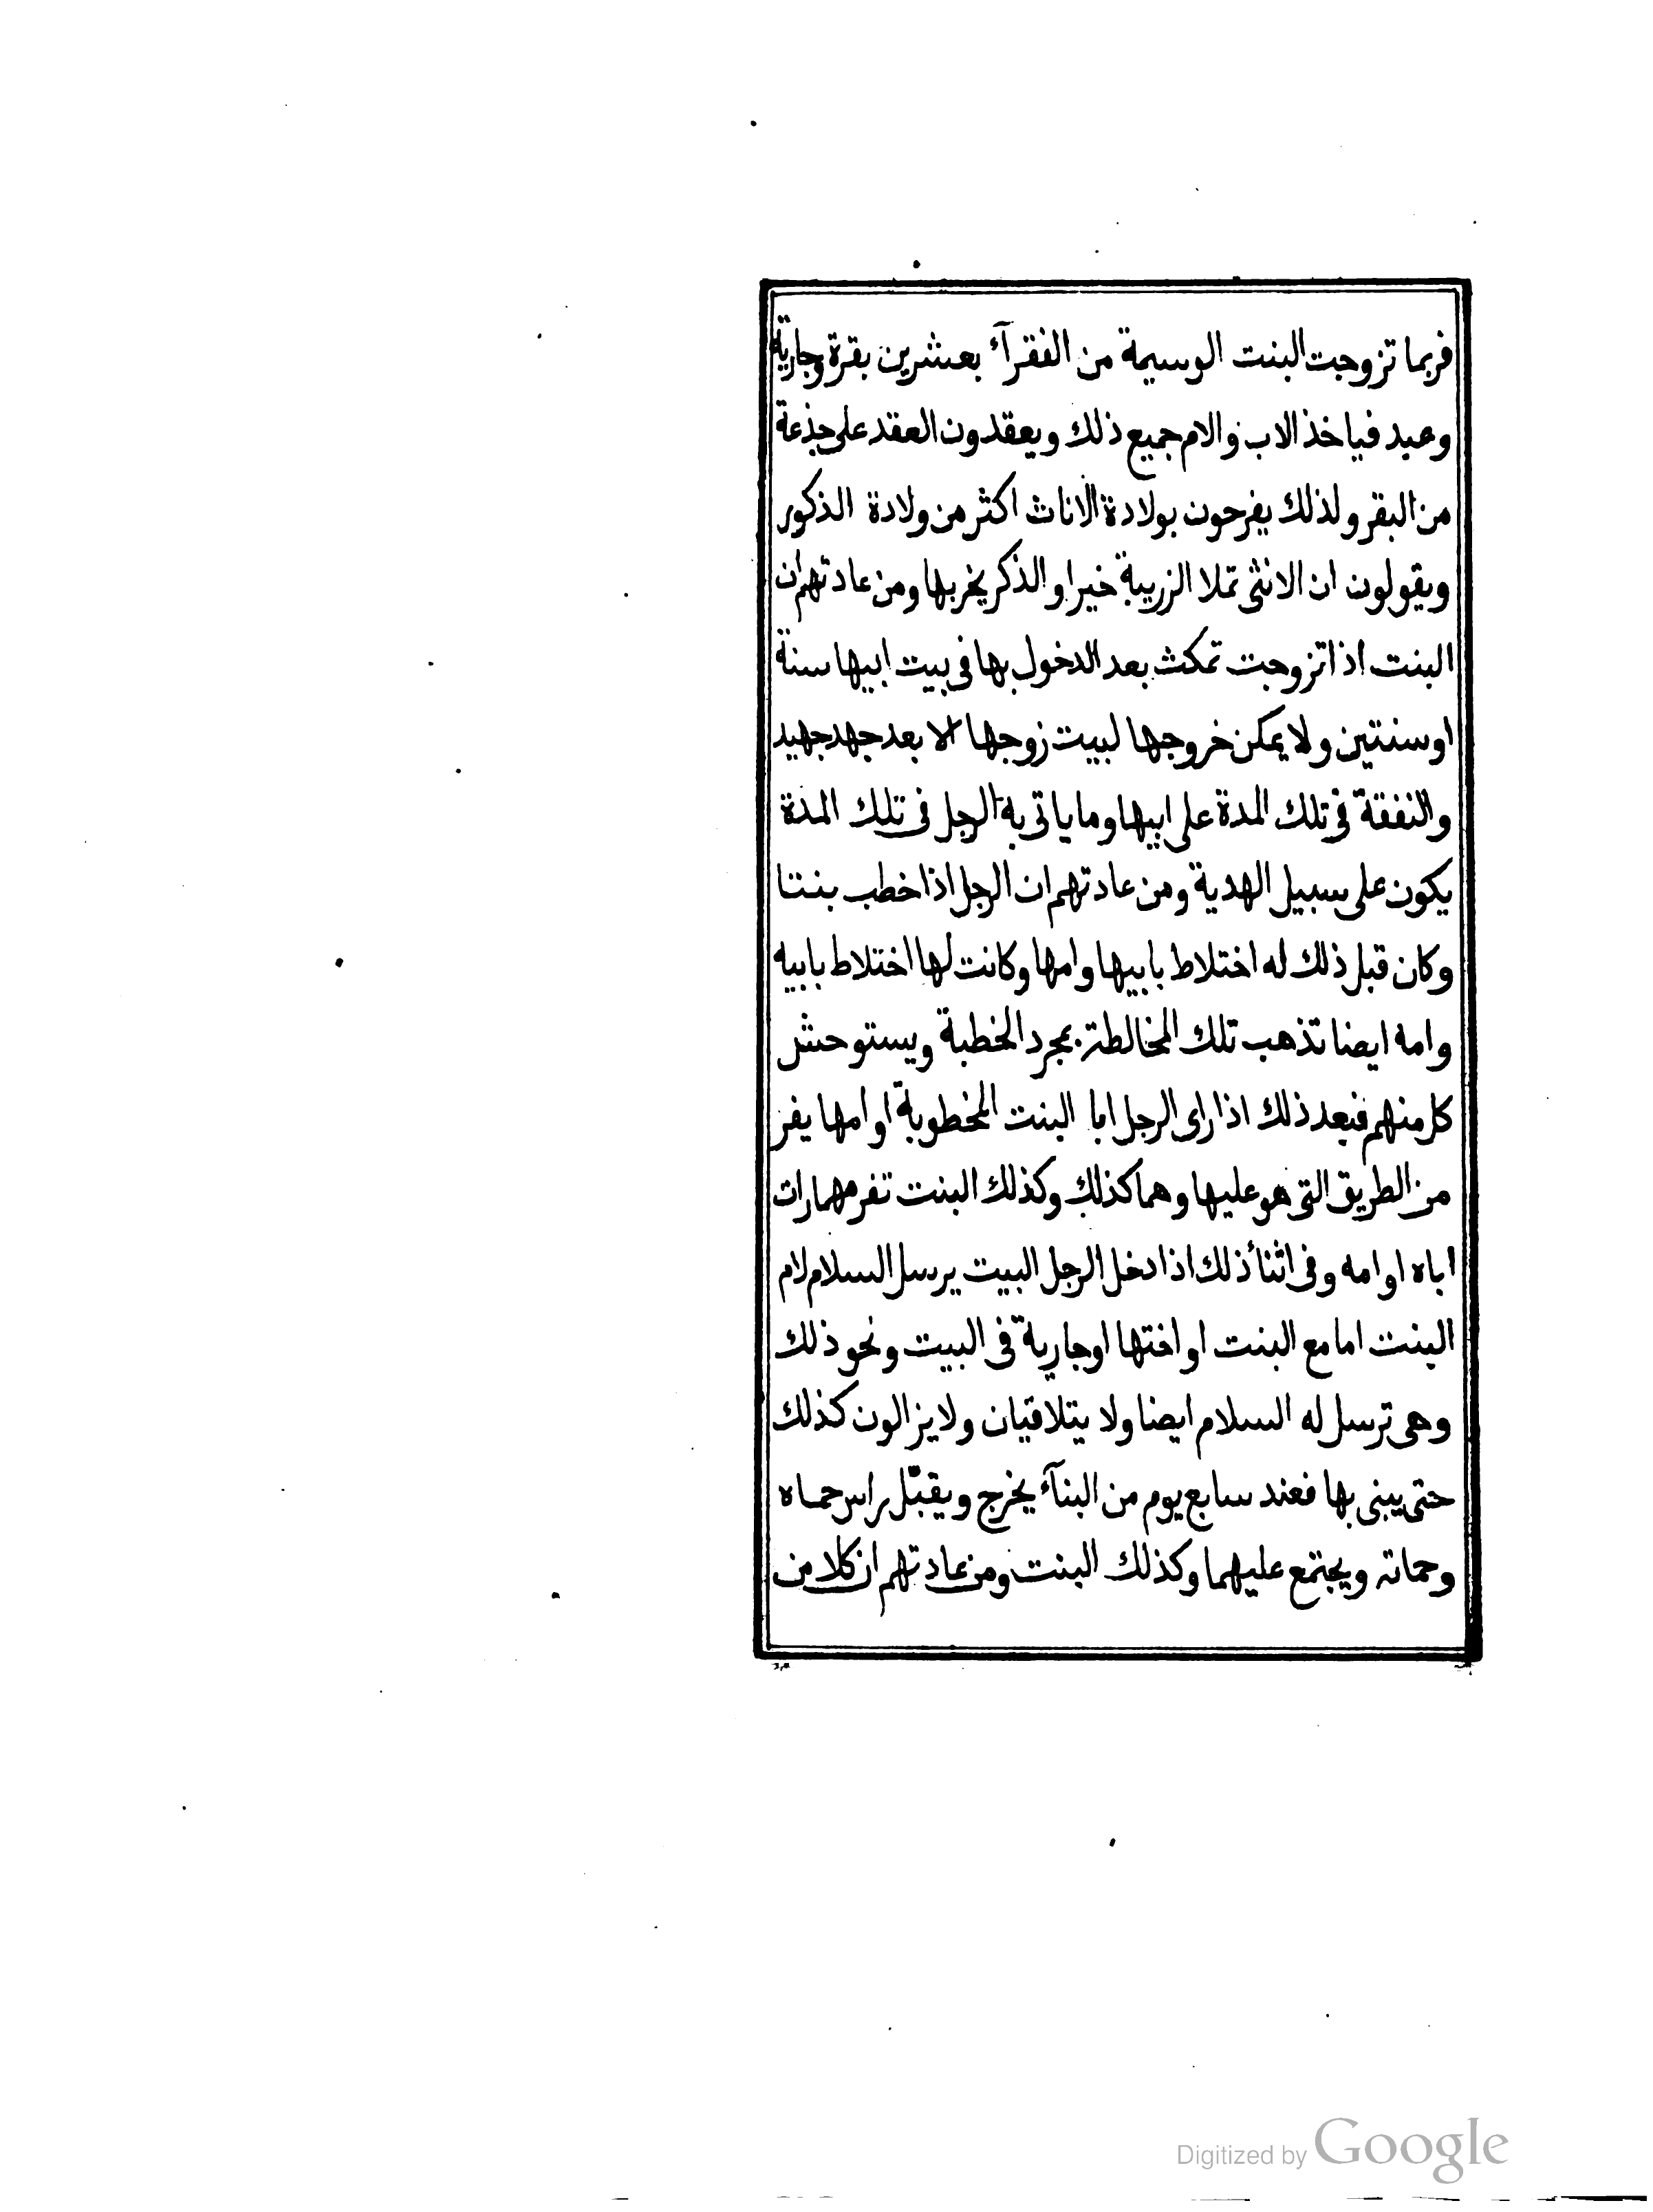 فربما تزوجت البنت الوسيمة من الفقرآء بعشرين بقرة وجارية
وعبد فياخذ الاب والام جميع ذلك ويعقدون العقد على جذعة
من البقر ولذلك يفرحون بولادة الاناث اكثر من ولادة الذكور
ويقولون ان الانثى تملا الزريبة خيرا والذكر يخربها ومن عادتهم ان
البنت اذا تزوجت تمكث بعد الدخول بها فى بيت ابيها سنة
او سنتين ولا يمكن خروجها لبيت زوجها الا بعد جهد جهيد
والنفقة فى تلك المدة على ابيها وما ياتى به الرجل فى تلك المدة
يكون على سبيل الهدية ومن عادتهم ان الرجل اذا خطب بنتا
وكان قبل ذلك له اختلاط بابيها وامها وكانت لها اختلاط بابيه
وامه ايضا تذهب تلك المخالطة بمجرد الخطبة ويستوحش
كل منهم فبعد ذلك اذا راى الرجل ابا البنت المخطوبة او امها يفر
من الطريق التى هو عليها وهما كذلك وكذلك البنت تفر مهما رات
اباه او امه وفى اثنأ ذلك اذا دخل الرجل البيت يرسل السلام لام
البنت اما مع البنت او اختها او جارية فى البيت ونحو ذلك
وهى ترسل له السلام ايضا ولا يتلاقيان ولا يزالون كذلك
حتى يبنى بها فعند سابع يوم من البنآء يخرج ويقبّل راس حماه
وحماته ويجتمع عليهما وكذلك البنت ومن عادتهم ان كلا من
Digitized by Google